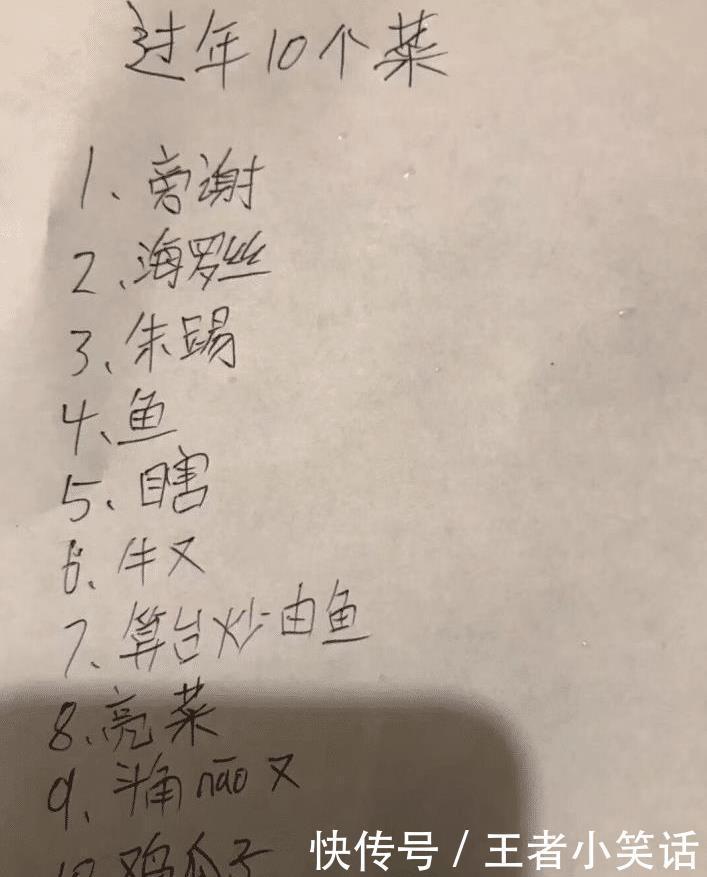 过年10个菜
1、旁谢
2、海罗丝
3、朱踢
4、鱼
5、瞎
6、牛又
7、算台炒由鱼
8、亮菜
9、斗角nāo又
10、鸡爪子
快传号 / 王者小笑话